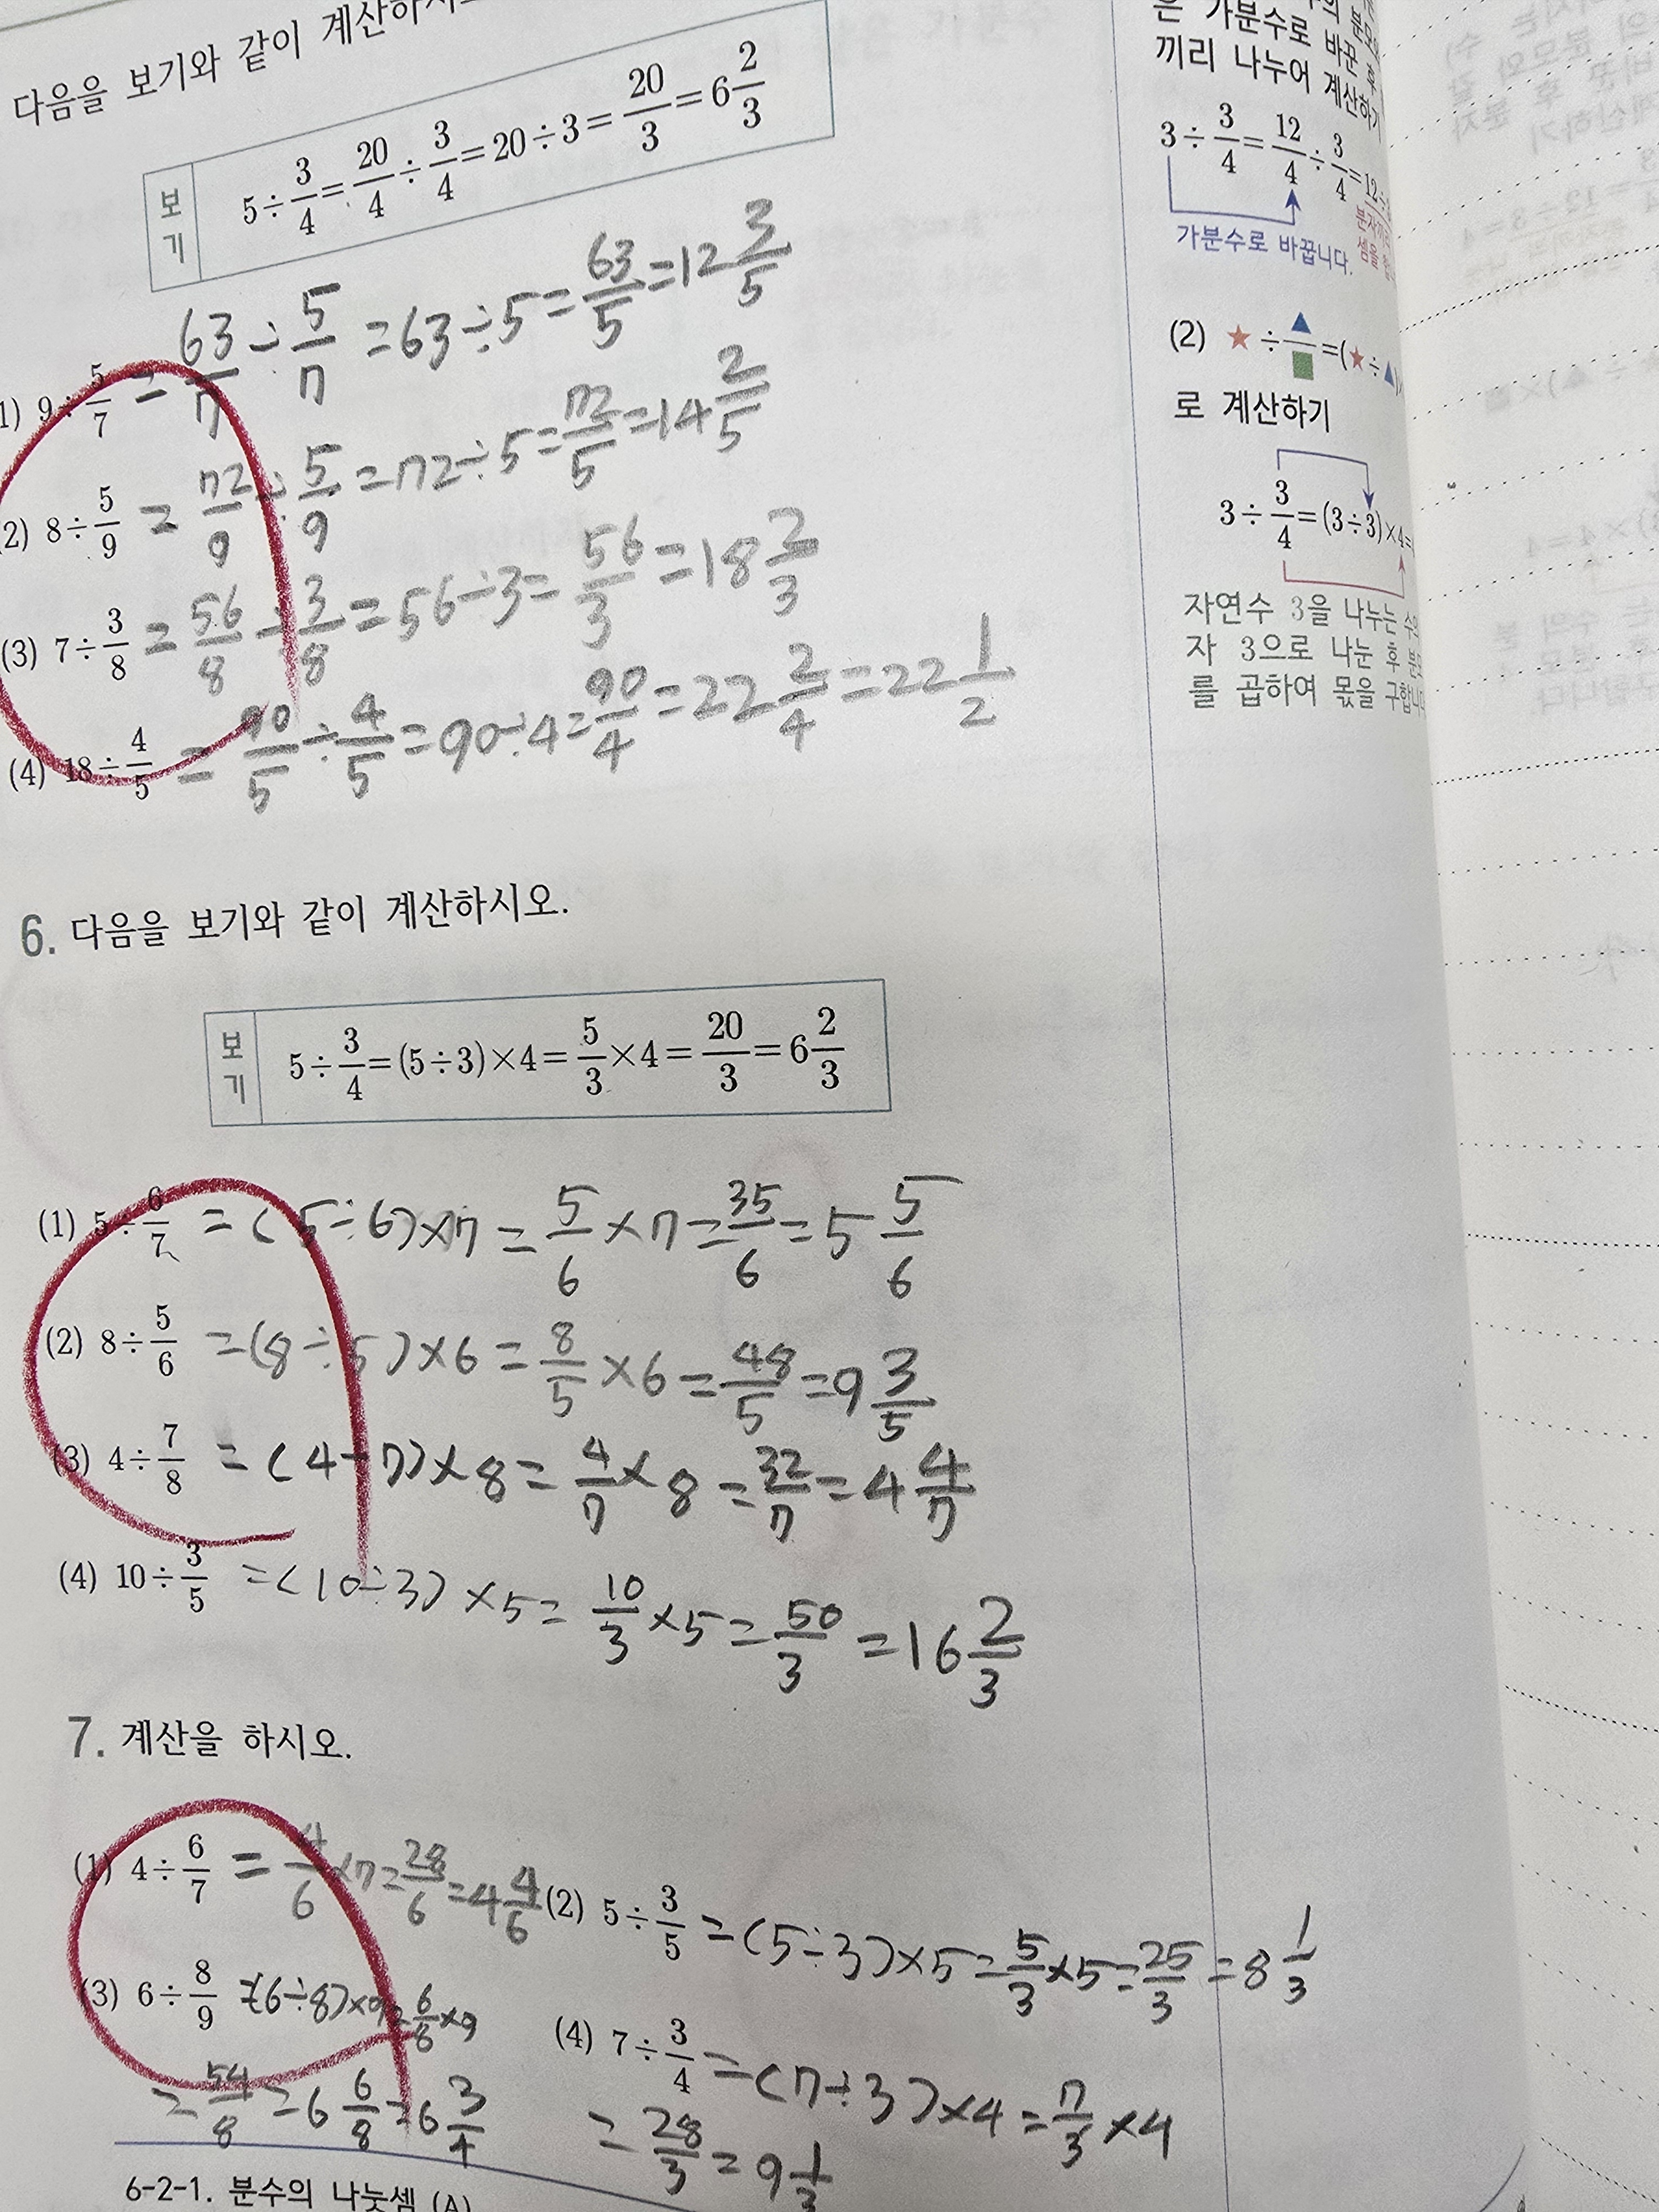 다음을 보기와 같이 계산하시
보기 5÷3/4=20/4÷3/4=20÷3=20/3=6 2/3
1) 9÷5/7 = 63/7÷5/7 =63÷5=63/5=12 3/5
2) 8÷5/9 = 72/9÷5/9 =72÷5=72/5=14 2/5
(3) 7÷3/8 = 56/8÷3/8 = 56÷3= 56/3 =18 2/3
(4) 18÷4/5 = 90/5÷4/5 = 90÷4=90/4=22 2/4=22 1/2
6. 다음을 보기와 같이 계산하시오.
보기 5÷3/4=(5÷3)×4=5/3×4=20/3=6 2/3
(1) 5÷6/7 = (5÷6)×7 = 5/6×7=35/6=5 5/6
(2) 8÷5/6 =(8÷5)×6 = 8/5×6=48/5=9 3/5
(3) 4÷7/8 = (4÷7)×8= 4/7×8=32/7=4 4/7
(4) 10÷3/5 =(10÷3)×5= 10/3×5=50/3=16 2/3
7. 계산을 하시오.
(1) 4÷6/7 = 4/6×7=28/6=4 4/6
(2) 5÷3/5 =(5÷3)×5=5/3×5=25/3=8 1/3
(3) 6÷8/9 =(6÷8)×9=6/8×9
=54/8=6 6/8=6 3/4
(4) 7÷3/4 =(7÷3)×4=7/3×4
=28/3=9 1/3
6-2-1. 분수의 나눗셈 (A)
은 가분수로 바꾼
끼리 나누어 계산하기
3÷3/4=12/4÷3/4=12÷
가분수로 바꿉니다.
(2) ★÷▲/■=(★÷▲)
로 계산하기
3÷3/4=(3÷3)×4=
자연수 3을 나누는 수
자 3으로 나눈 후
를 곱하여 몫을 구합니